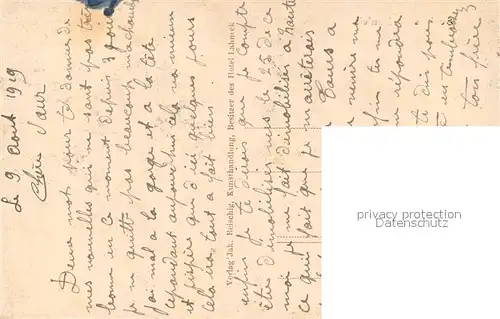 Le 9 Aout 1919
Chère Sœur
Deux mot pour toi donner de
mes nouvelles qui ne sont pas très
bonne en ce moment depuis 3 jours
je ne quitte pas beaucoup ma chambre
j'ai mal a la gorge et a la tête
cependant aujourd'hui cela va mieux
et j'espère que d'ici quelques jours
cela ira tout a fait bien
Verlag Jak. Reischig, Kunsthandlung, Besitzer des Hotel Lahneck
enfin je te dirais que je compte
être démobiliser vers le 25 de ce
mois je me fait démobiliser a
ce qui fait que je m'arrêterais
Tours a
venire
enfin tes
répondra
te dis
et en
ton frère
privacy protection
Datenschutz